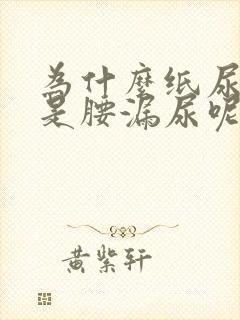 为什麼纸尿
是腰漏尿呢
黄紫轩